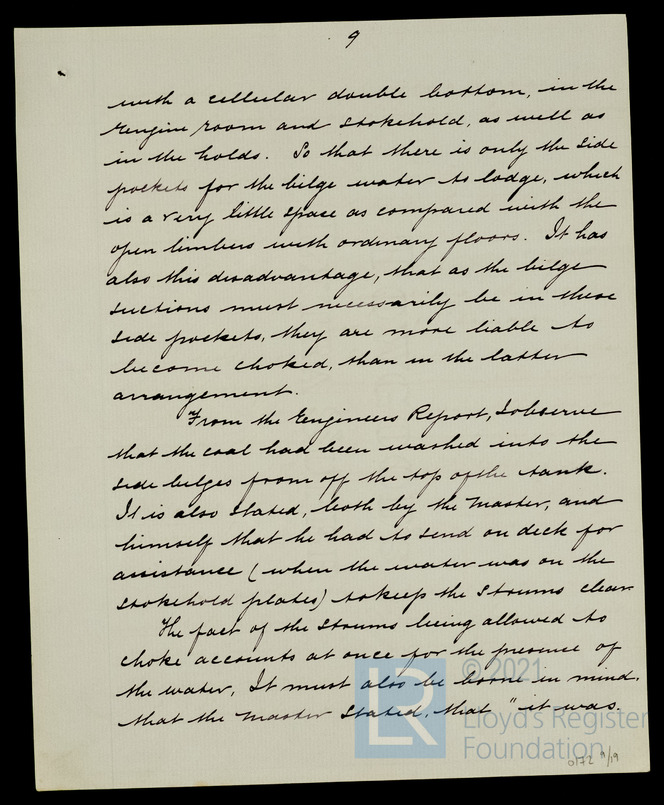 9
with a cellular double bottom, in the
Engine room and Stokehold, as well as
in the holds. So that there is only the side
pockets for the bilge water to lodge, which
is a very little space as compared with the
open limbers with ordinary floors. It has
also this disadvantage, that as the bilge
suctions must necessarily be in these
side pockets, they are more liable to
become choked, than in the latter
arrangement.
From the Engineers Report, I observe
that the coal had been washed into the
side bilges from off the top of the tank.
It is also stated, both by the Master, and
himself that he had to send on deck for
assistance (when the water was on the
stokehold plates) to keep the Strums clear
The fact of the Strums being allowed to
choke accounts at once for the presence of
the water, It must also be borne in mind,
that the Master stated, that "it was.
LR
© 2021
Lloyd's Register
Foundation
0172 9/19